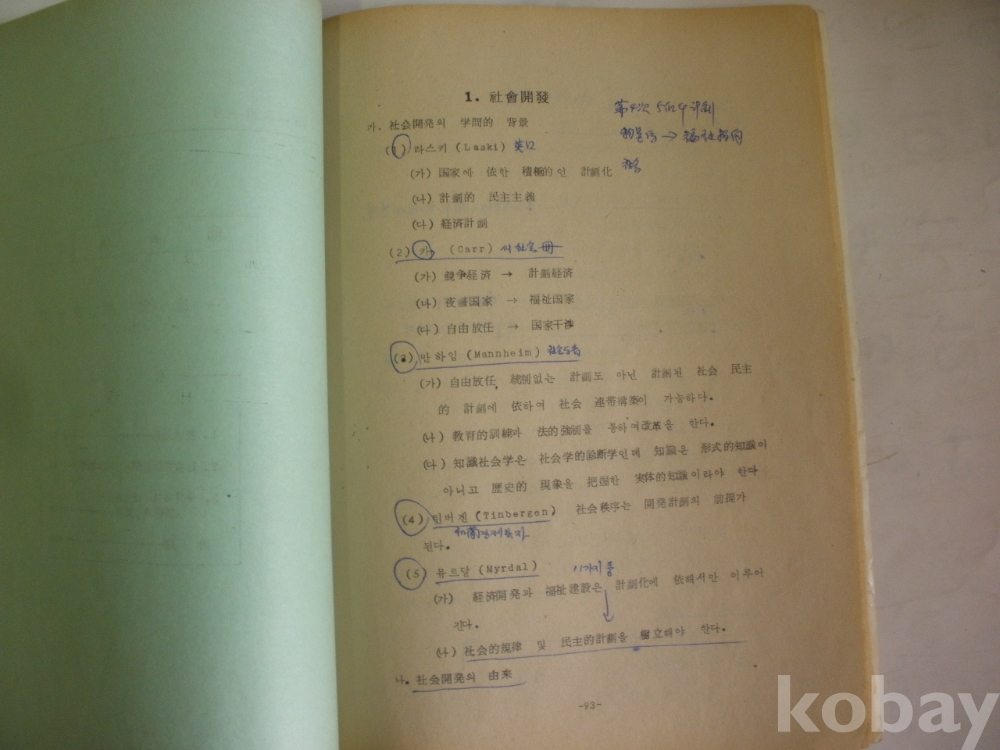 1. 社會開發
가. 社会開発의 学問的 背景
(1) 라스키 (Laski)
(가) 国家에 依한 積極的인 計劃化
(나) 計劃的 民主主義
(다) 経済計劃
(2) 카 (Carr)
(가) 競争経済 → 計劃経済
(나) 夜警国家 → 福祉国家
(다) 自由放任 → 国家干渉
(3) 만하임 (Mannheim)
(가) 自由放任, 統制없는 計劃도 아닌 計劃된 社会 民主
的 計劃에 依하여 社会 連帯構築이 가능하다.
(나) 教育的訓練과 法的強制를 통하여改革을 한다.
(다) 知識社会学은 社会学的診断学인데 知識은 形式的知識이
아니고 歴史的 現象을 把握한 実体的知識이라야 한다
(4) 틴버겐 (Tinbergen) 社会秩序는 開発計劃의 前提가
된다.
(5) 뮤르달 (Myrdal) 11가지
(가) 経済開発과 福祉建設은 計劃化에 依해서만 이루어
진다.
(나) 社会的規律 및 民主的計劃을 樹立해야 한다.
나. 社会開発의 由来
-93-
kobay